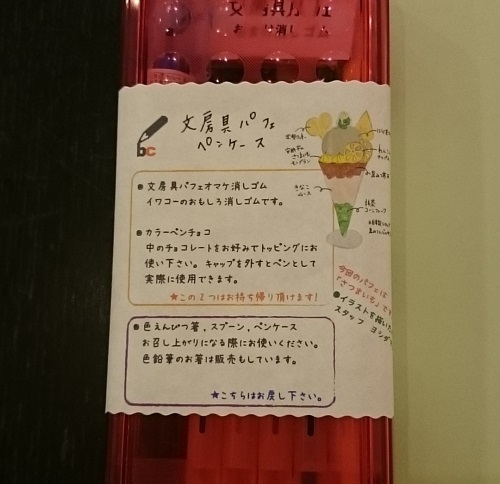 文房具パフェ
おまけ消しゴム
bc
文房具パフェ
ペンケース
● 文房具パフェオマケ消しゴム
イワコーのおもしろ消しゴムです。
● カラーペンチョコ
中のチョコレートをお好みでトッピングにお
使い下さい。キャップを外すとペンとして
実際に使用できます。
★この2つはお持ち帰り頂けます!
● 色えんぴつ箸、スプーン、ペンケース
お召し上がりになる際にお使いください。
色鉛筆のお箸は販売もしています。
★こちらはお戻し下さい。
きなこ
ムース
抹茶
コーンフレーク
今回のパフェは
「さつまいも」です
●イラストを描いた
スタッフ ヨシダ